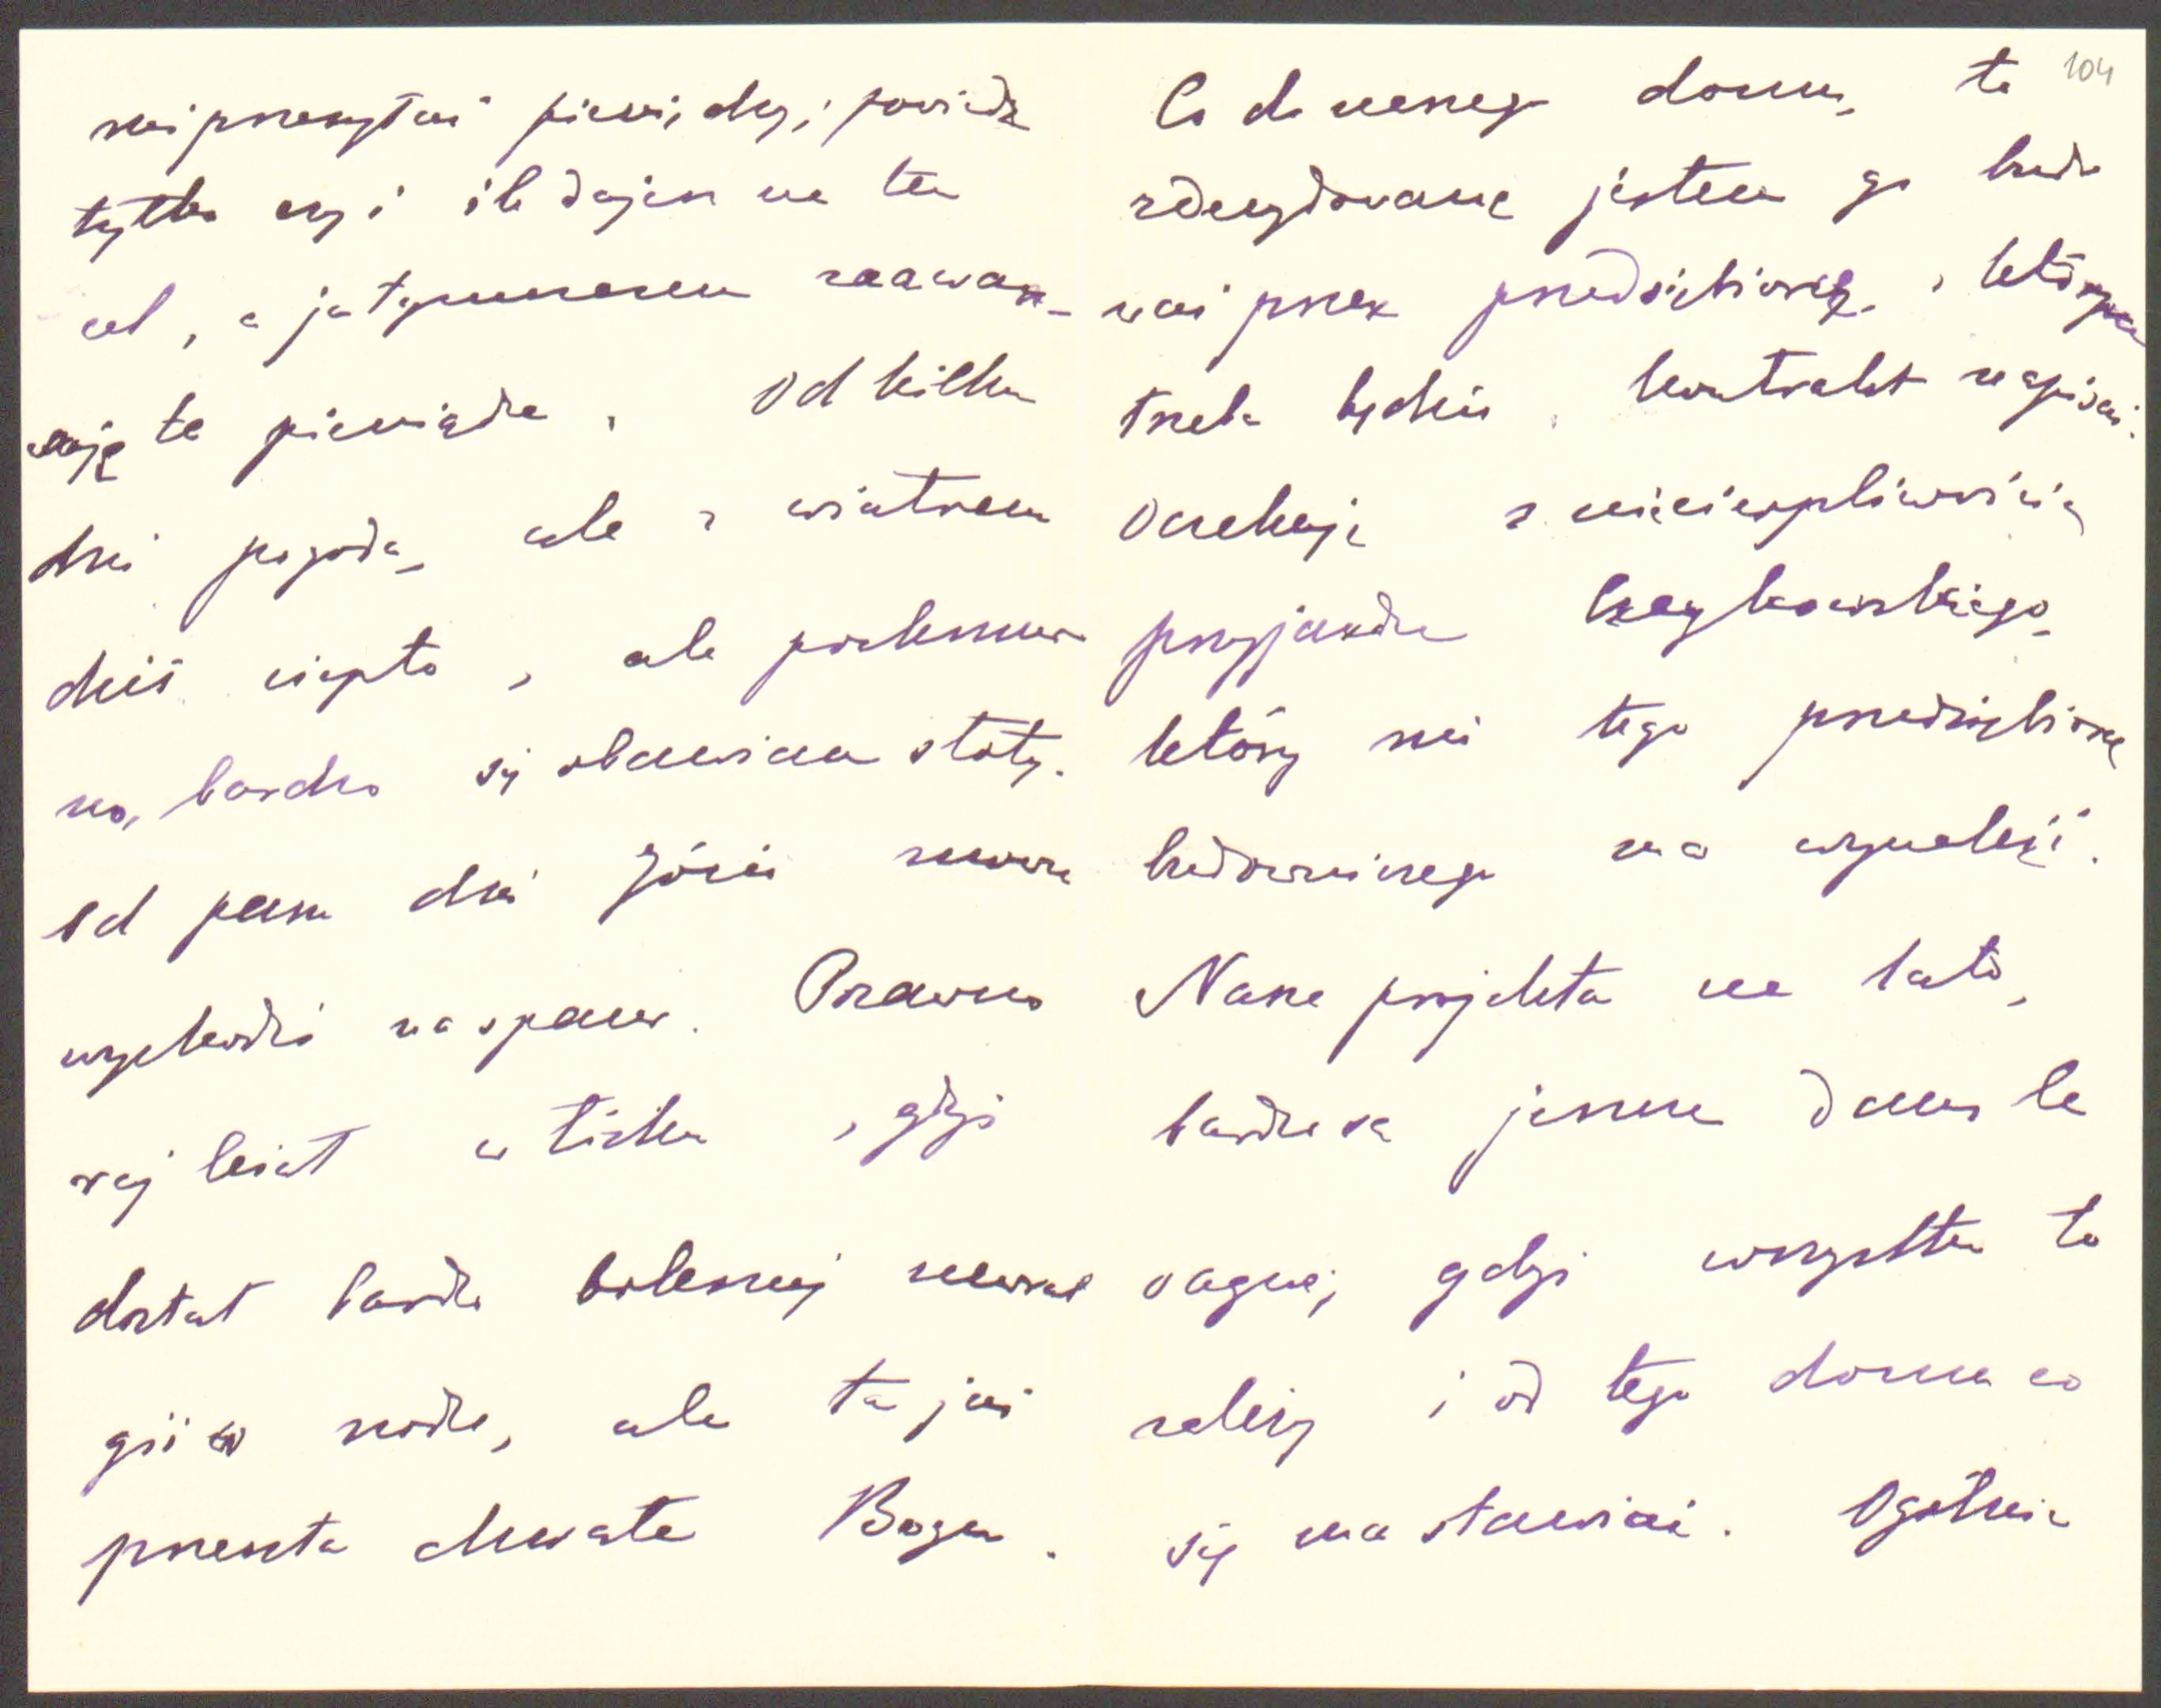 mi przesyłać pieniędzy, powiedz
tylko czy i ile dajesz na ten
cel, a ja tymczasem zaawan-
suję te pieniądze. Od kilku
dni pogoda, ale z wiatrem
dziś ciepło, ale pochmur-
no, bardzo się obawiam słoty.
od paru dni Józio znowu
wychodzi na spacer. Onegdaj
leżał w łóżku, gdyż
dostał bardzo bolesnej neural
gii w nodze, ale ta już
przeszła chwała Bogu.
104
Co do naszego domu, to
zdecydowaną jestem go budo
wać przez przedsiębiorcę, z którym
trzeba będzie kontrakt napisać.
Oczekuję z niecierpliwością
przyjazdu Czaykowskiego,
który mi tego przedsiębiorcę
budowniczego ma wynaleźć.
Nasze projekta na lato,
bardzo są jeszcze dans le
vague, gdyż wszystko to
zależy i od tego domu co
się ma stawiać. Ogólnie